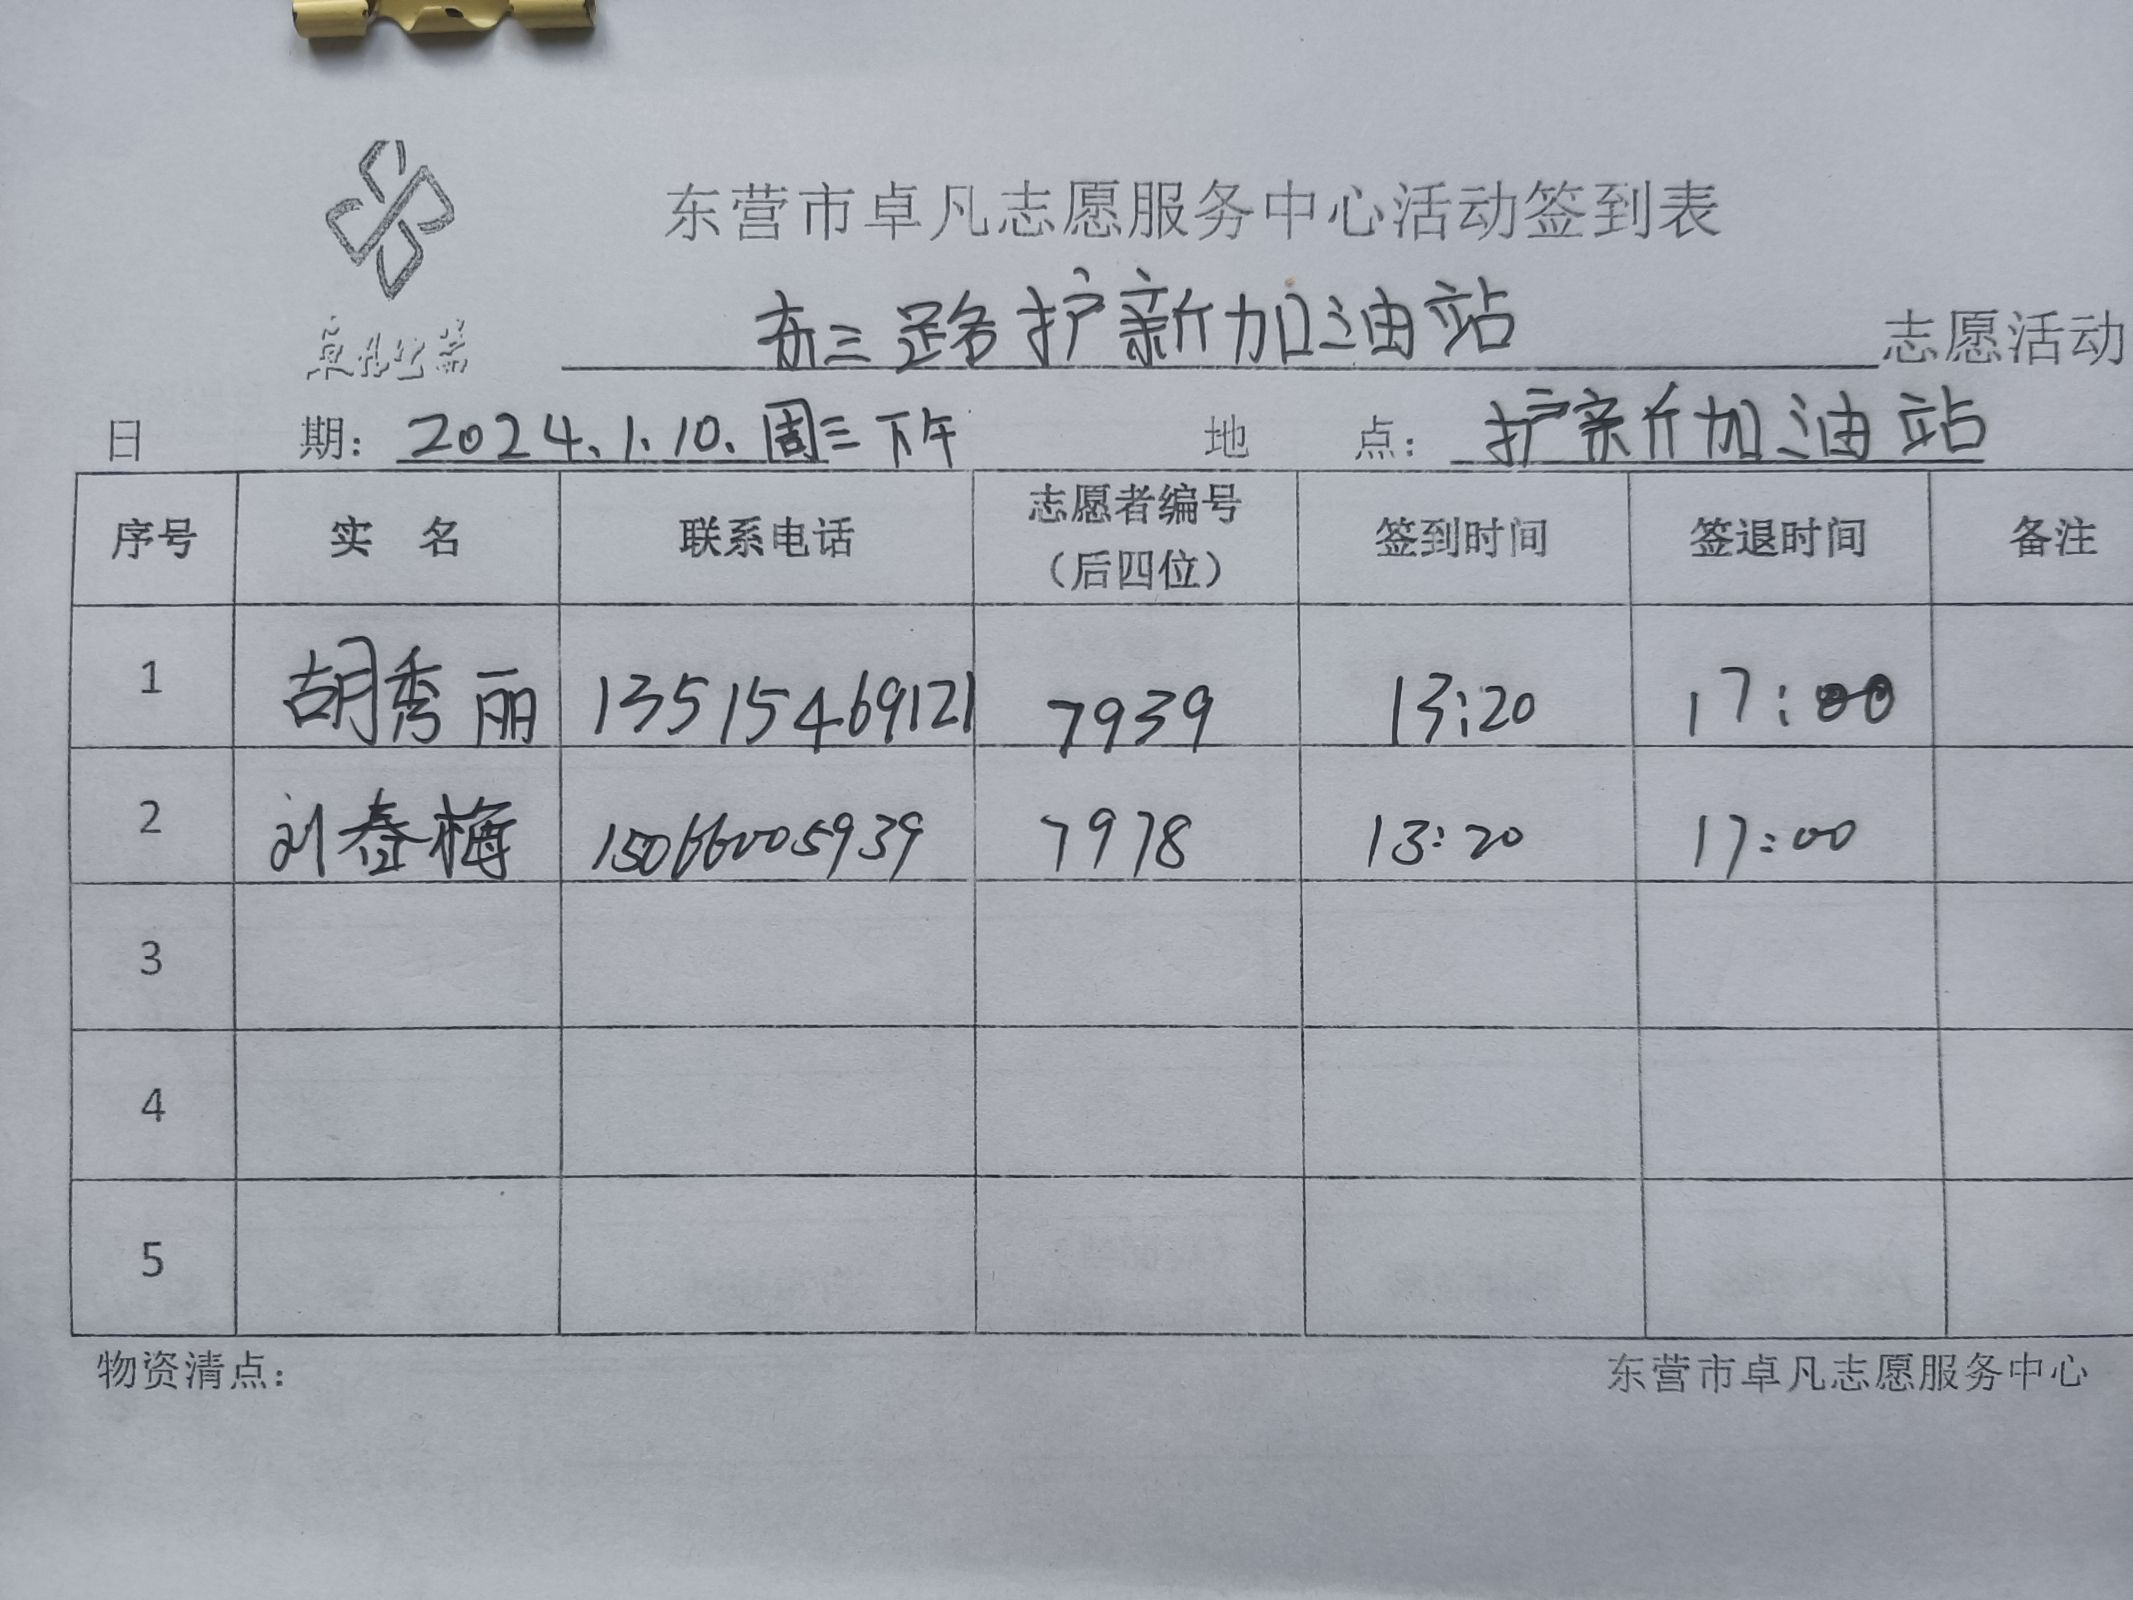 东营市卓凡志愿服务中心活动签到表
卓凡公益
东三路护新加油站 志愿活动
日 期: 2024.1.10.周三下午 地 点: 护新加油站
序号 实 名 联系电话 志愿者编号（后四位） 签到时间 签退时间 备注
1 胡秀丽 13515469121 7939 13:20 17:00
2 刘春梅 15066005939 7978 13:20 17:00
3
4
5
物资清点: 东营市卓凡志愿服务中心